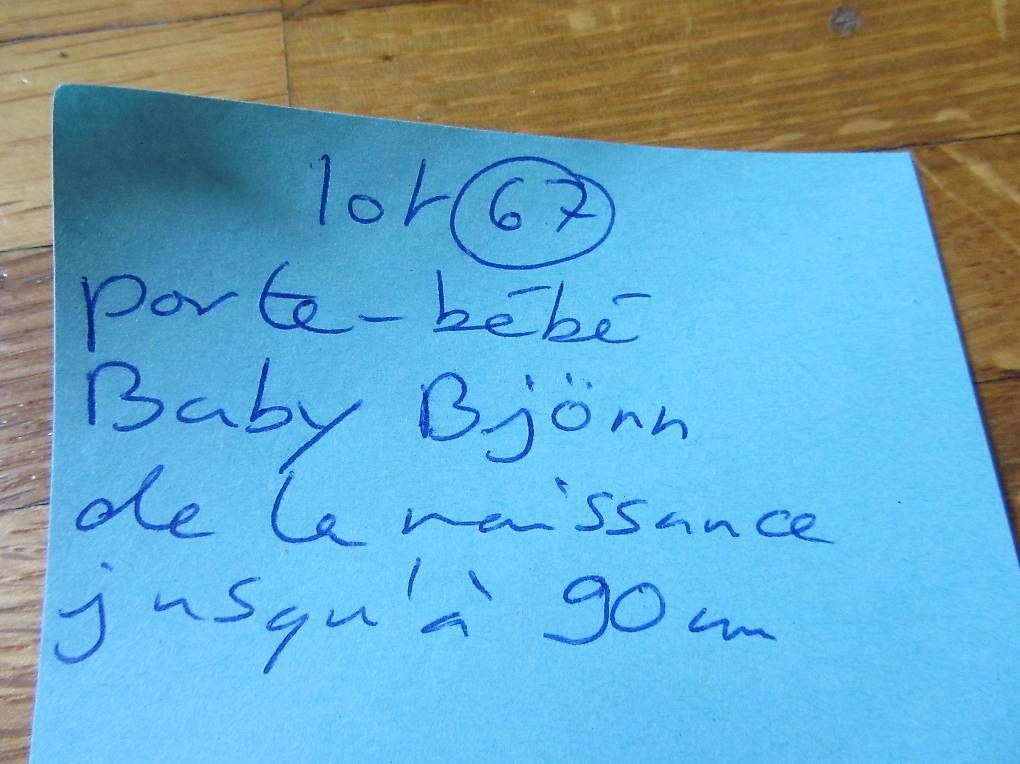 lot 67
porte-bébé
Baby Björn
de la naissance
jusqu'à 90 cm